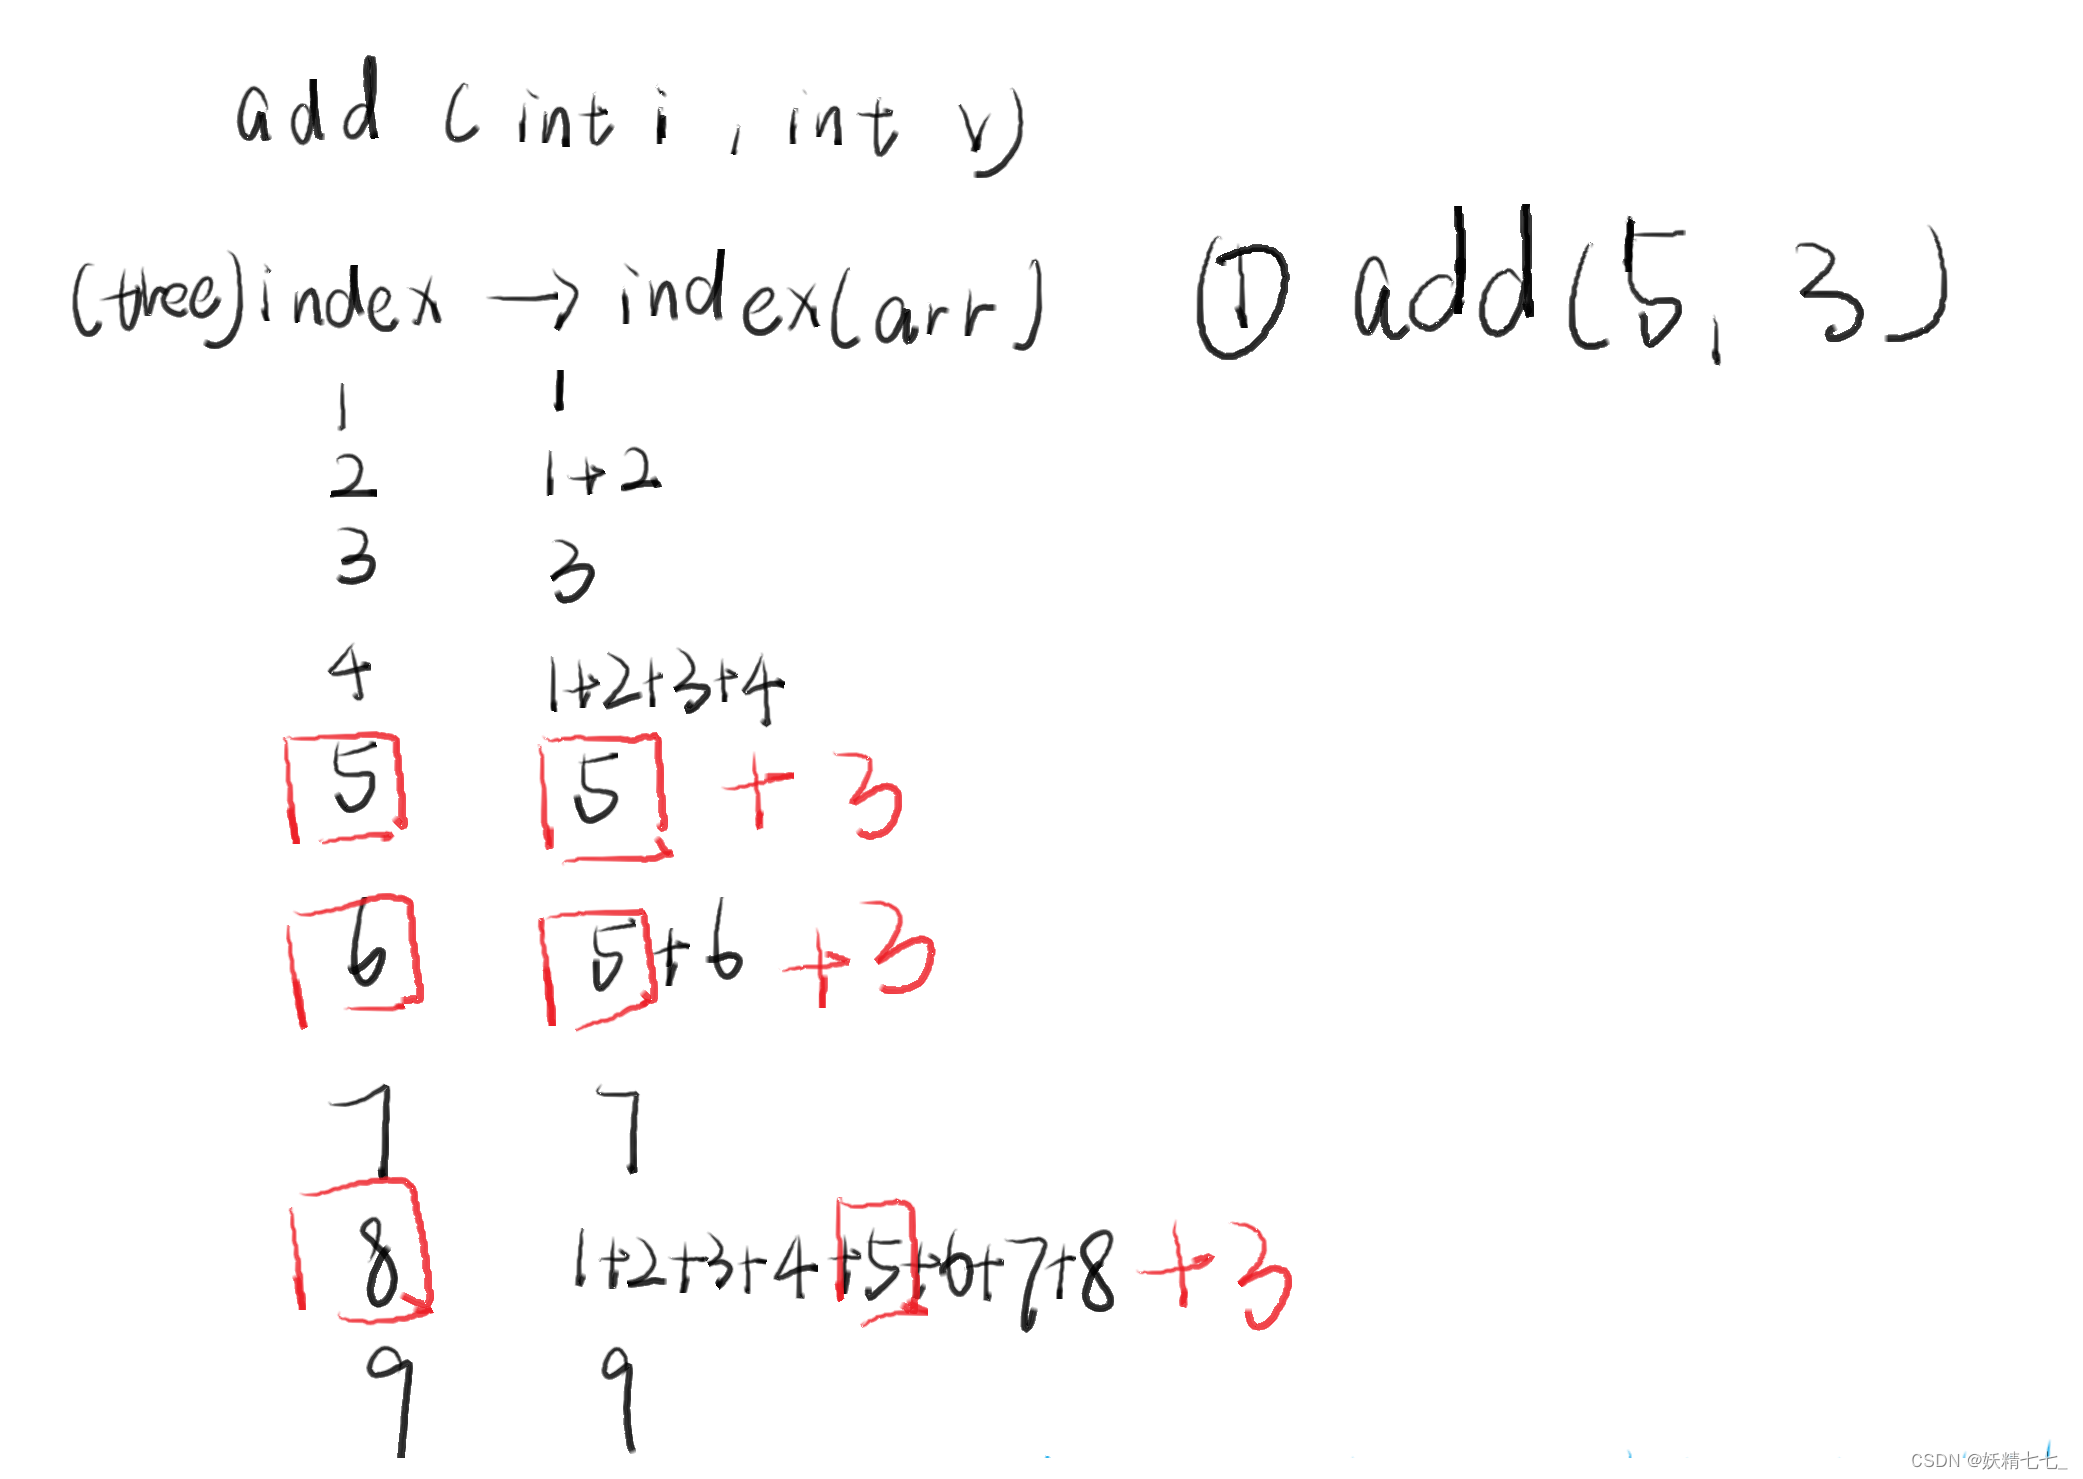 add (int i, int v)
(tree)index → index(arr) ① add(5, 3)
1 1
2 1+2
3 3
4 1+2+3+4
5 5 +3
6 5+6 +3
7 7
8 1+2+3+4+5+6+7+8 +3
9 9
CSDN @妖精七七_